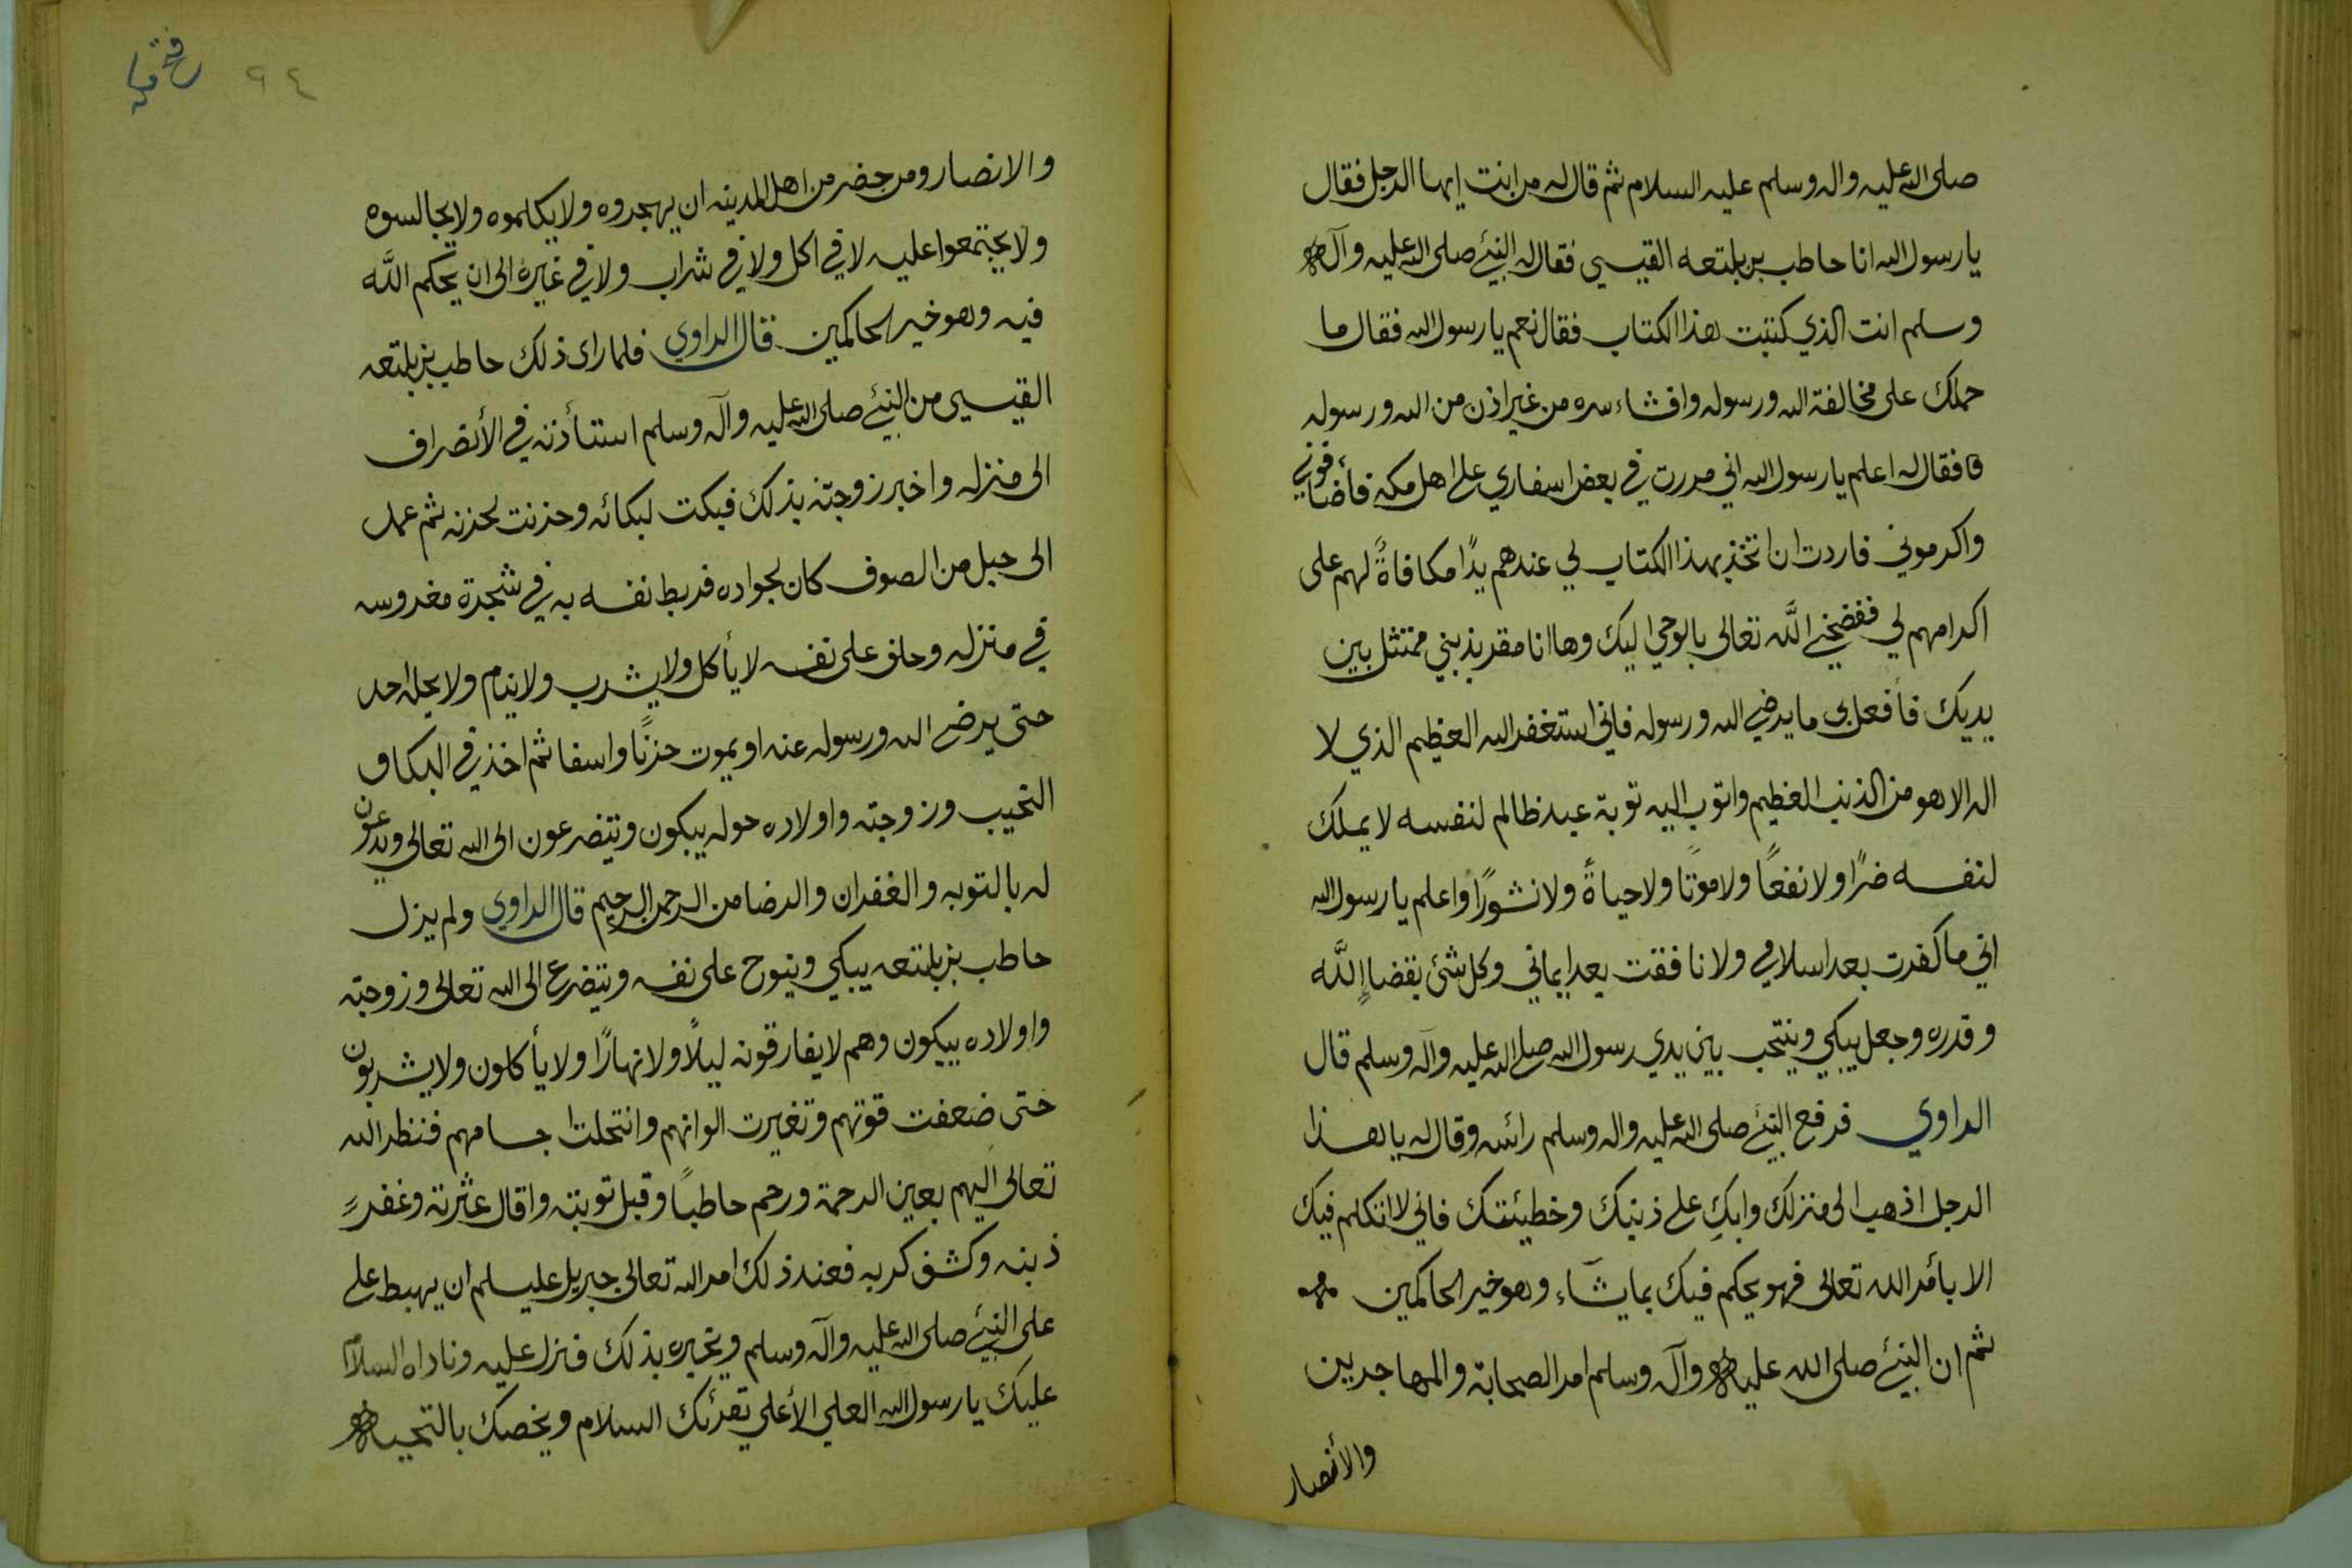 صلى الله عليه واله وسلم عليه السلام ثم قال له من انت ايها الرجل فقال
يا رسول الله انا حاطب بن بلتعه القيسي فقال له النبيء صلى الله عليه وآله
وسلم انت الذي كتبت هذا الكتاب فقال نعم يا رسول الله فقال ما
حملك على مخالفة الله ورسوله وافشاء سره من غير اذن من الله ورسوله
فقال له اعلم يا رسول الله اني مررت في بعض اسفاري على اهل مكه فأضافوني
واكرموني فاردت ان اتخذ بهذا الكتاب لي عندهم يدًا مكافاةً لهم على
اكرامهم لي ففضحني اللَّه تعالى بالوحي اليك وها انا مقر بذنبي ممتثل بين
يديك فأفعل بي ما يرضي الله ورسوله فاني استغفر الله العظيم الذي لا
اله الا هو من الذنب العظيم واتوب اليه توبة عبد ظالم لنفسه لا يملك
لنفسه ضرًا ولا نفعًا ولا موتًا ولا حياةً ولا نشورًا واعلم يا رسول الله
اني ما كفرت بعد اسلامي ولا نافقت بعد ايماني وكل شئ بقضاء اللَّه
وقدره وجعل يبكي وينتحب بين يدي رسول الله صلى الله عليه وآله وسلم قال
الراوي فرفع النبيء صلى الله عليه واله وسلم رائسه وقال له يا هذا
الرجل اذهب الى منزلك وابكِ على ذنبك وخطيئتك فاني لا اتكلم فيك
الا بأمر الله تعالى فهو يحكم فيك بما يشآء وهو خير الحاكمين
ثم ان النبيء صلى الله عليه وآله وسلم امر الصحابة والمهاجرين
والأنصار
٩٤
والانصار ومن حضر من اهل المدينه ان يهجروه ولا يكلموه ولا يجالسوه
ولا يجتمعوا عليه لا في اكل ولا في شراب ولا في غيره الى ان يحكم اللَّه
فيه وهو خير الحاكمين قال الراوي فلما راى ذلك حاطب بن بلتعه
القيسي من النبيء صلى الله عليه وآله وسلم استأذنه في الأنصراف
الى منزله واخبر زوجته بذلك فبكت لبكائه وحزنت لحزنه ثم عمد
الى حبل من الصوف كان لجواده فربط نفسه به في شجرة مغروسه
في منزله وحلف على نفسه لا يأكل ولا يشرب ولا ينام ولا يحله احد
حتى يرضى الله ورسوله عنه او يموت حزنًا واسفا ثم اخذ في البكا و
النحيب وزوجته واولاده حوله يبكون ويتضرعون الى الله تعالى ويدعون
له بالتوبه والغفران والرضا من الرحمن الرحيم قال الراوي ولم يزل
حاطب بن بلتعه يبكي وينوح على نفسه ويتضرع الى الله تعالى وزوجته
واولاده يبكون وهم لا يفارقونه ليلًا ولا نهارًا ولا يأكلون ولا يشربون
حتى ضعفت قوتهم وتغيرت الوانهم وانتحلت اجسامهم فنظر الله
تعالى اليهم بعين الرحمة ورحم حاطبًا وقبل توبته واقال عثرته وغفر
ذنبه وكشف كربه فعند ذلك امر الله تعالى جبريل عليسلم ان يهبط على
على النبيء صلى الله عليه وآله وسلم ويخبره بذلك فنزل عليه وناداه السلام
عليك يا رسول الله العلي الأعلي يقرئك السلام ويخصك بالتحيه